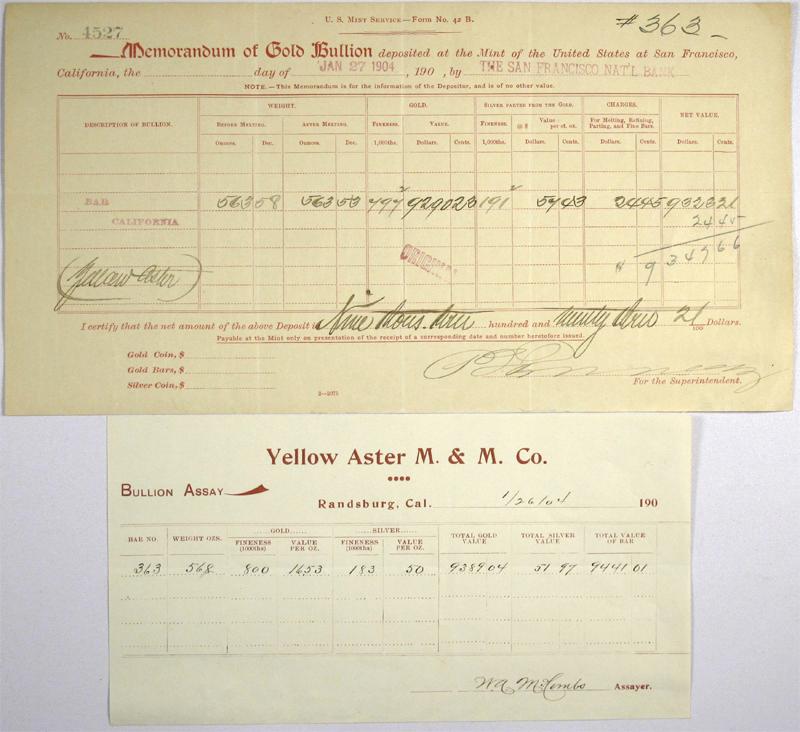 U. S. Mint Service—Form No. 42 B.
# 363 —
No. 4527
Memorandum of Gold Bullion deposited at the Mint of the United States at San Francisco,
California, the day of JAN 27 1904, 190 , by THE SAN FRANCISCO NAT'L BANK
NOTE.—This Memorandum is for the information of the Depositor, and is of no other value.
WEIGHT. GOLD. SILVER PARTED FROM THE GOLD. CHARGES.
DESCRIPTION OF BULLION. BEFORE MELTING. AFTER MELTING. FINENESS. VALUE. FINENESS. @ $ Value per st. oz. For Melting, Refining, Parting, and Fine Bars. NET VALUE.
Ounces. Dec. Ounces. Dec. 1,000ths. Dollars. Cents. 1,000ths. Dollars. Cents. Dollars. Cents. Dollars. Cents.
BAR 563 58 563 53 797 2 9290 23 191 2 57 43 24 45 9323 21
CALIFORNIA 24 45
ORIGINAL $ 9347 66
Yellow Aster
I certify that the net amount of the above Deposit is Nine thous. three hundred and twenty three 21/100 Dollars.
Payable at the Mint only on presentation of the receipt of a corresponding date and number heretofore issued.
Gold Coin, $
Gold Bars, $
Silver Coin, $
For the Superintendent.
2—2075
Yellow Aster M. & M. Co.
BULLION ASSAY
Randsburg, Cal. 1/26/04 190
GOLD SILVER
BAR NO. WEIGHT OZS. FINENESS (1000ths) VALUE PER OZ. FINENESS (1000ths) VALUE PER OZ. TOTAL GOLD VALUE TOTAL SILVER VALUE TOTAL VALUE OF BAR
363 568 800 1653 183 50 9389.04 51 97 9441 01
W A McCombs Assayer.